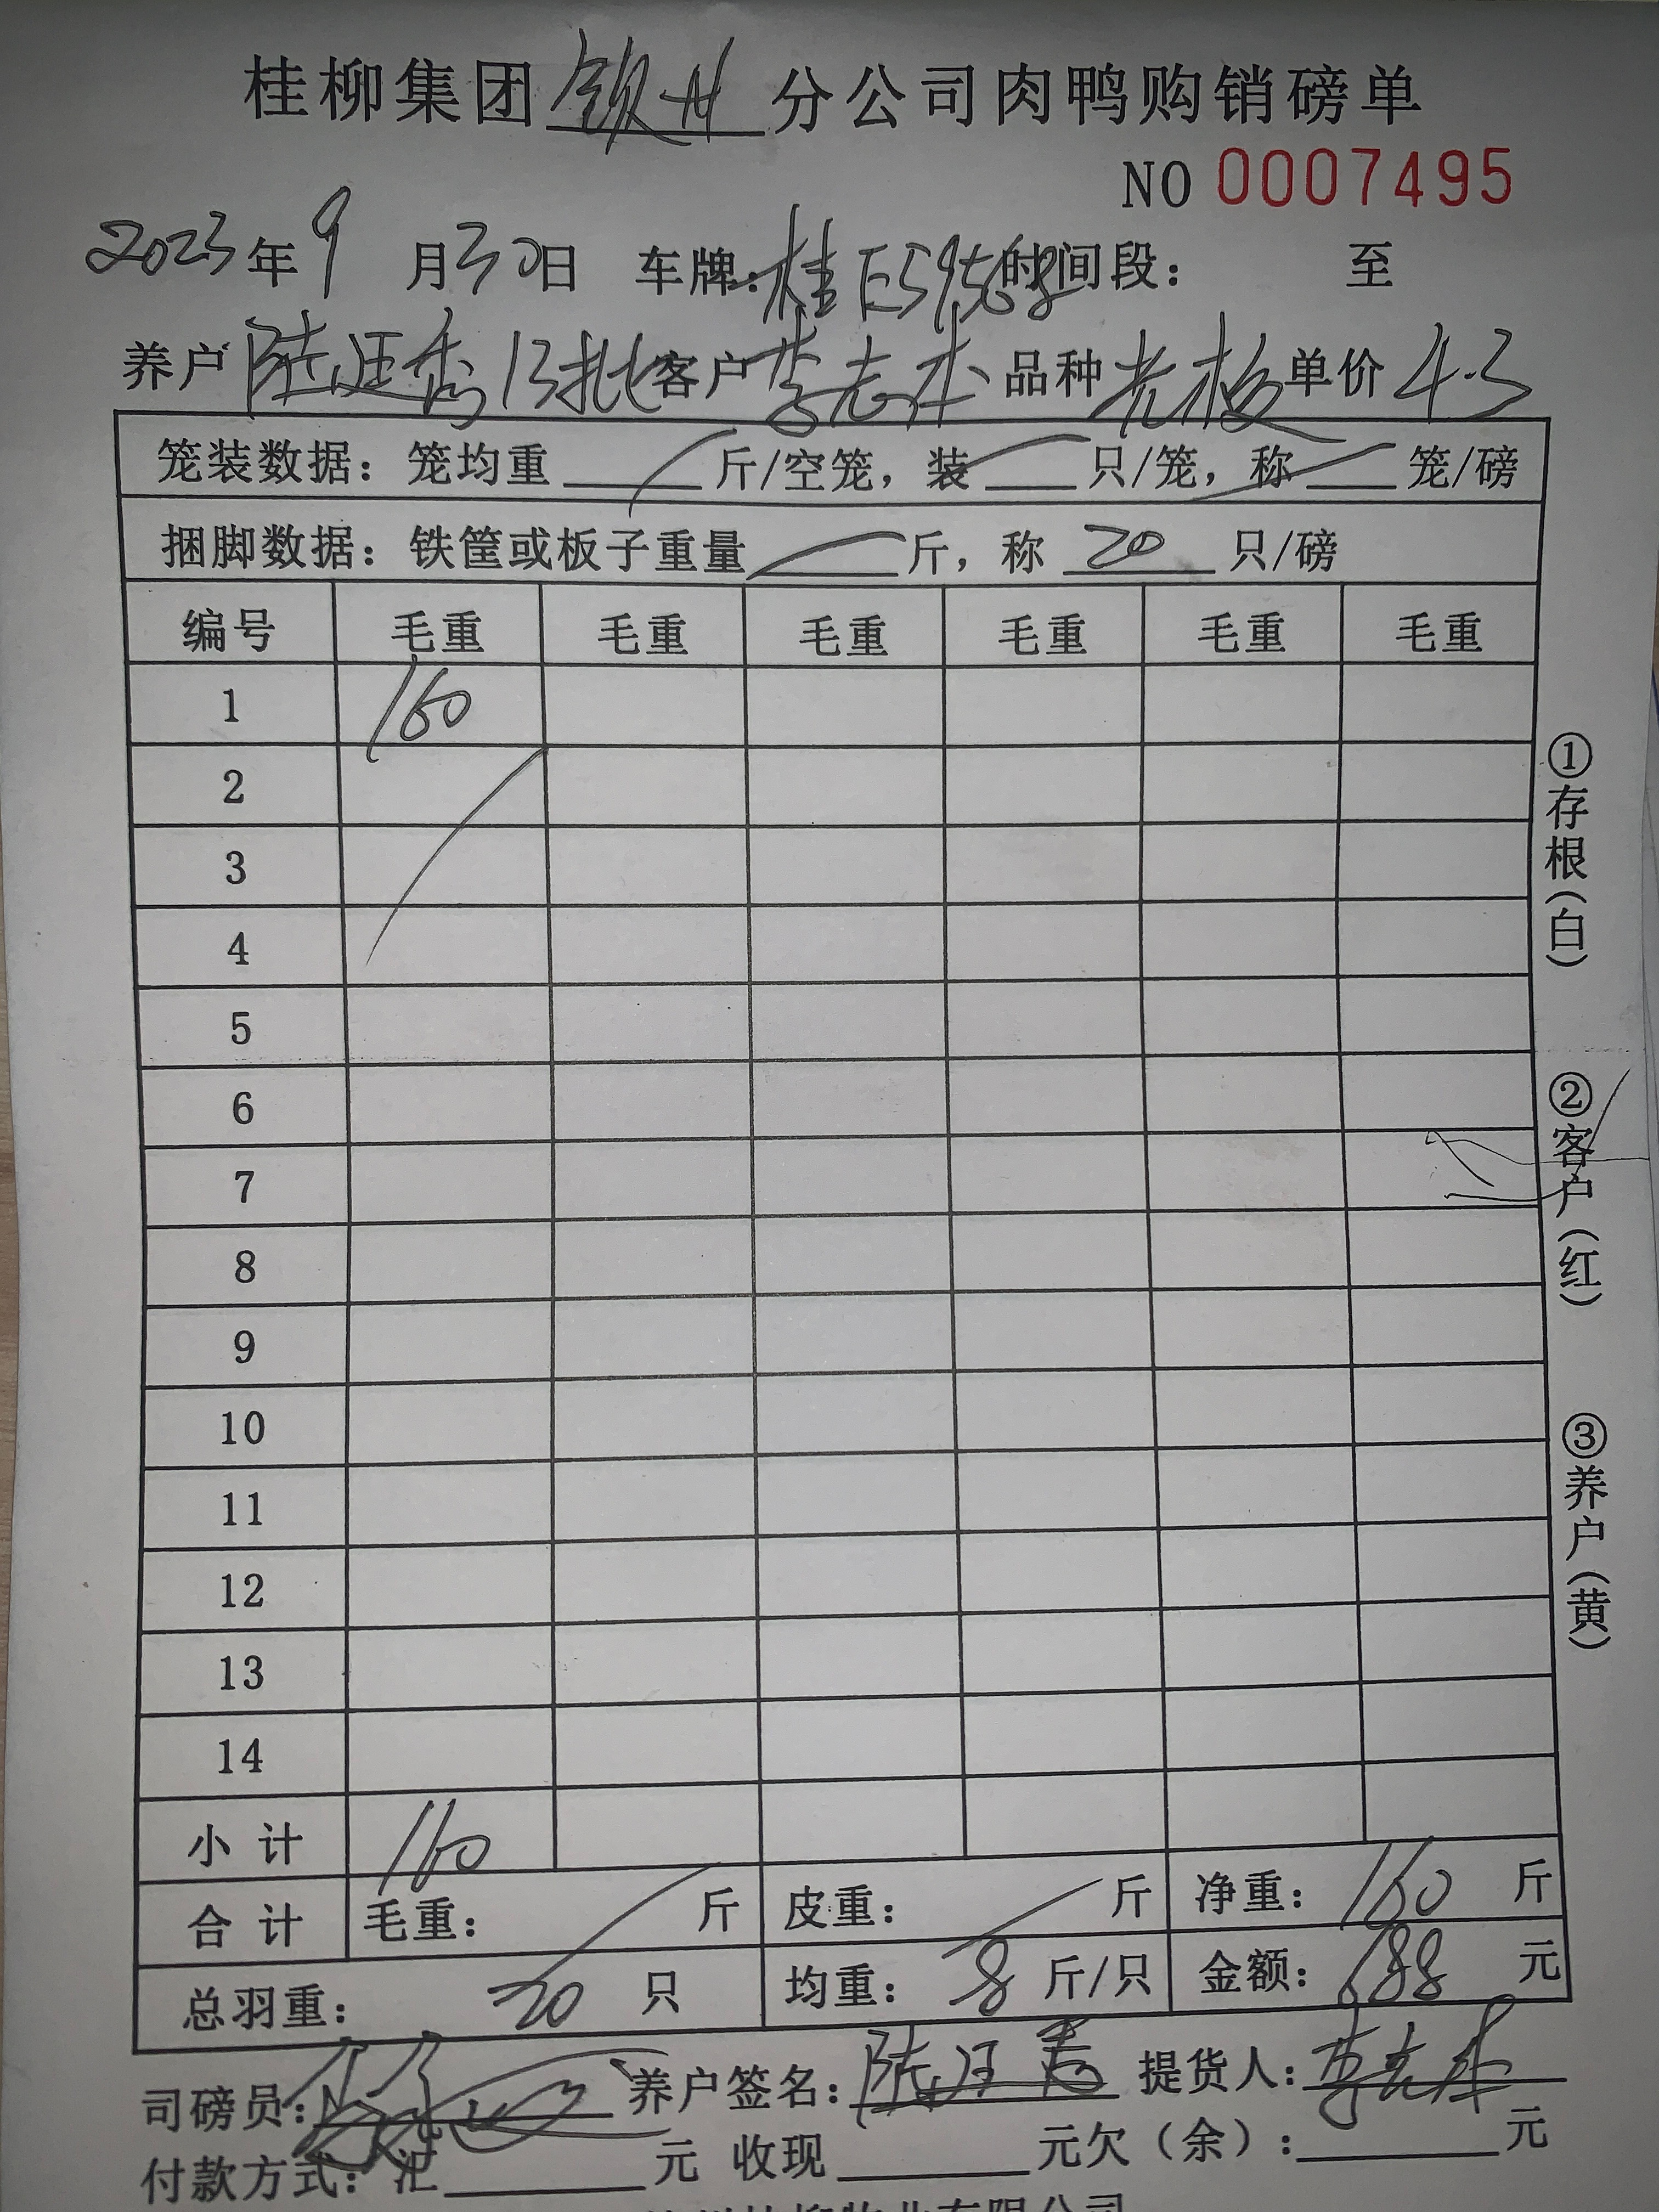 桂柳集团 钦州 分公司肉鸭购销磅单
NO 0007495
2023年9月30日 车牌: 桂 时间段: 至
养户 陆旺秀13批 客户 李志本 品种 光板 单价 4.3
笼装数据: 笼均重 斤/空笼, 装 只/笼, 称 笼/磅
捆脚数据: 铁筐或板子重量 斤, 称 20 只/磅
编号 毛重 毛重 毛重 毛重 毛重 毛重
1 160
2
3
4
5
6
7
8
9
10
11
12
13
14
小计 160
合计 毛重: 斤 皮重: 斤 净重: 160 斤
总羽重: 20 只 均重: 8 斤/只 金额: 688 元
司磅员: 养户签名: 陆旺秀 提货人: 李志本
付款方式: 汇 元 收现 元欠(余): 元
①存根(白)
②客户(红)
③养户(黄)